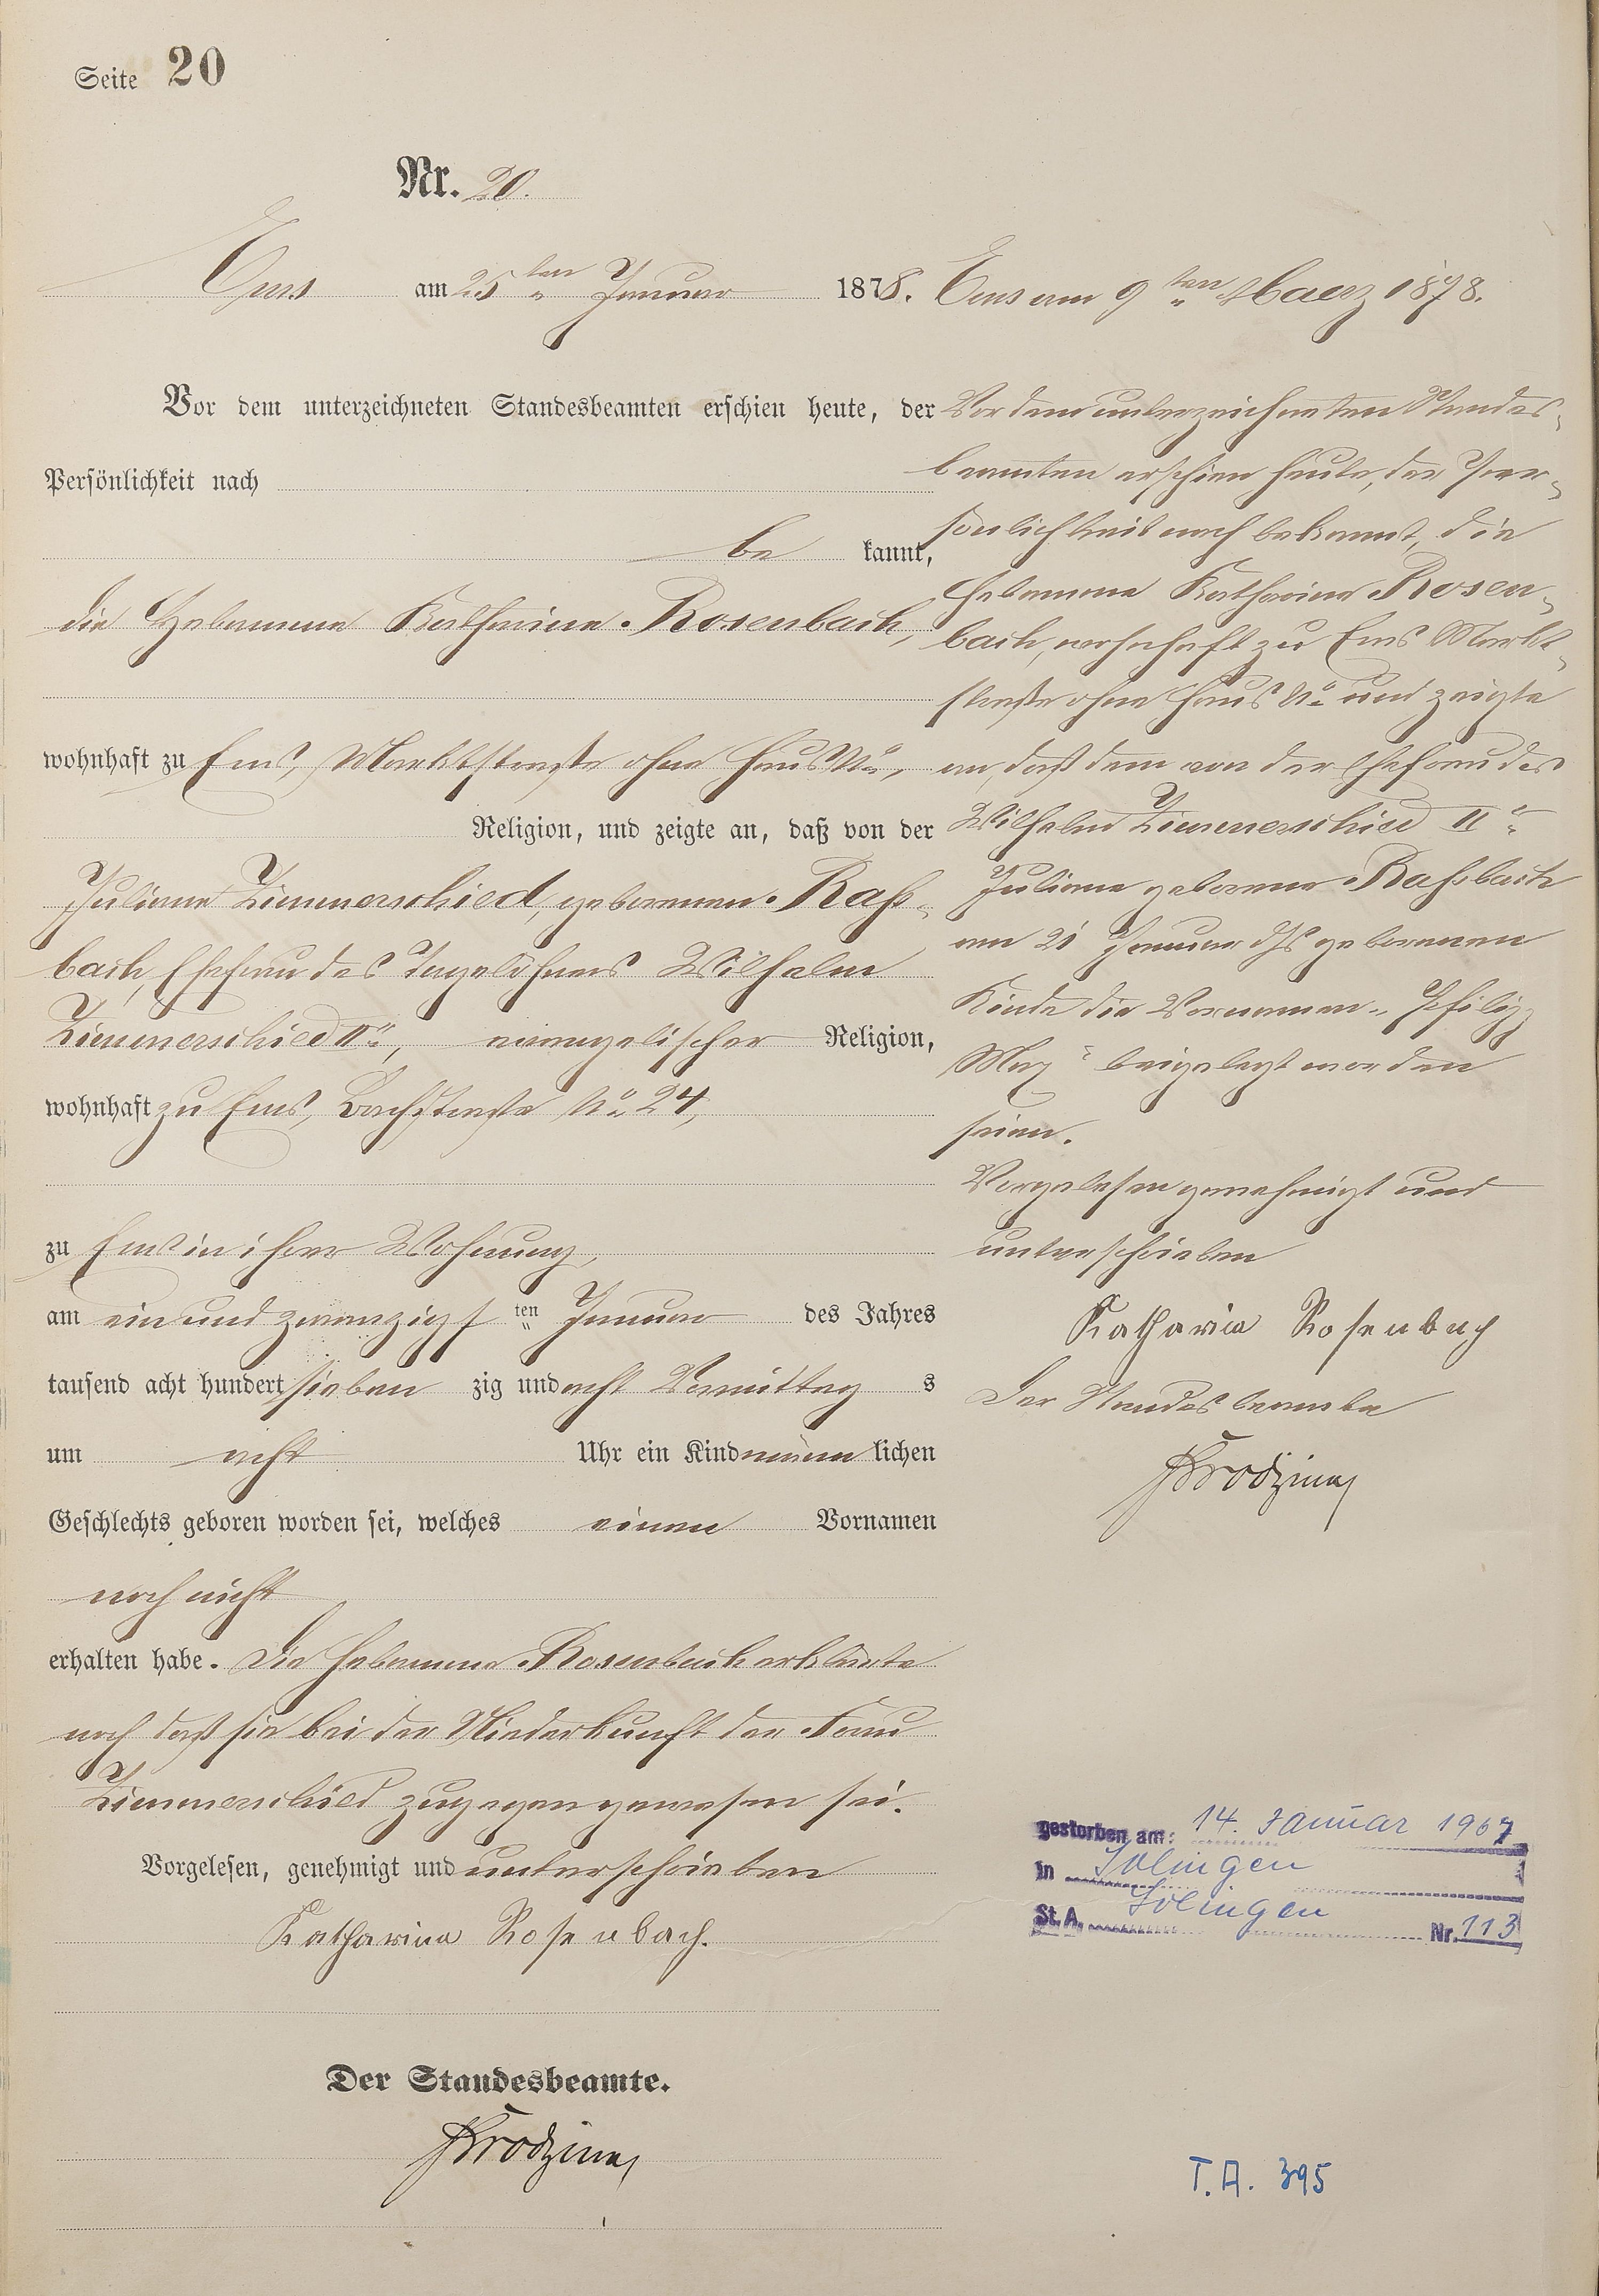 Seite 20
Nr. 20.
Ems am 25ten Januar 1878.
Vor dem unterzeichneten Standesbeamten erschien heute, der
Persönlichkeit nach
be kannt,
die Hebamme Katharina Rosenbach,
wohnhaft zu Ems, Marktstraße ohne Haus No,
Religion, und zeigte an, daß von der
Juliane Zimmerschied, geborenen Rahs-
bach, Ehefrau des Tagelöhners Wilhelm
Zimmerschied IIr, evangelischer Religion,
wohnhaft zu Ems, Bachstraße No 24,
zu Ems in ihrer Wohnung,
am ein und zwanzigsten Januar des Jahres
tausend acht hundert sieben zig und acht Vormittag s
um acht Uhr ein Kind männ lichen
Geschlechts geboren worden sei, welches einen Vornamen
noch nicht
erhalten habe. Die Hebamme Rosenbach erklärte
noch daß sie bei der Niederkunft der Frau
Zimmerschied zugegen gewesen sei.
Vorgelesen, genehmigt und unterschrieben
Katharina Rosenbach.
Der Standesbeamte.
Ems am 9ten Maerz 1878.
Vor dem unterzeichneten Standes-
beamten erschien heute, der Per-
sönlichkeit nach bekannt, die
Hebamme Katharina Rosen-
bach, wohnhaft zu Ems Markt-
straße ohne Haus No und zeigte
an, daß dem von der Ehefrau des
Wilhelm Zimmerschied IIr
Juliane geborene Rahsbach
am 21 Januar ds Js geborenen
Kinde die Vornamen „Philipp
Max“ beigelegt worden
seien.
Vorgelesen genehmigt und
unterschrieben
Katharina Rosenbach
Der Standesbeamte
gestorben am: 14. Januar 1967
in Solingen
St.A. Solingen Nr. 113
T.A. 395